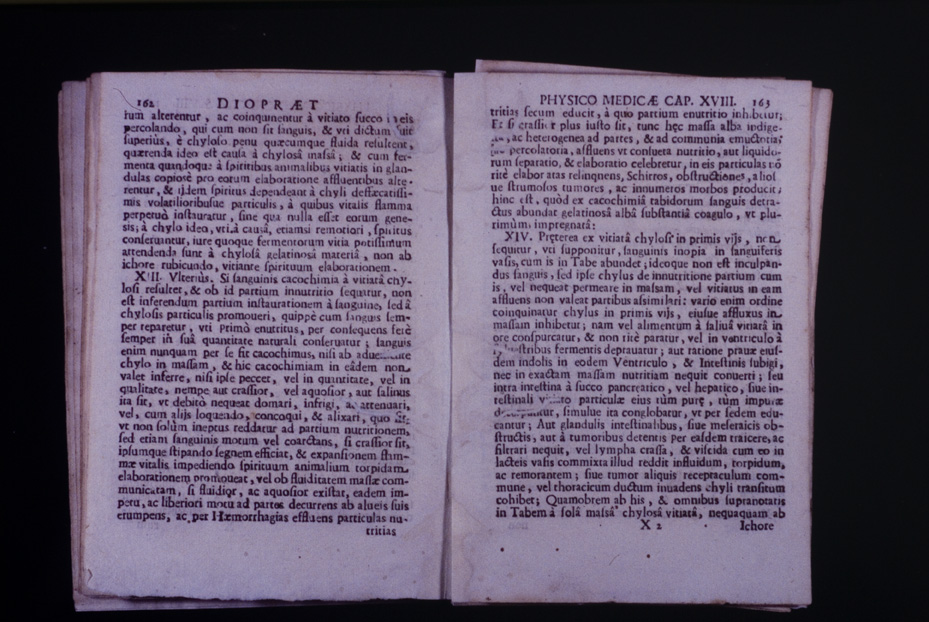 162 DIOPRÆT
rum alterentur, ac coinquinentur à vitiato succo i veis
percolando, qui cum non sit sanguis, & vti dictum fuit
superiùs, è chyloso penu quæcumque fluida resultent,
quærenda ideo est causa à chylosâ massâ; & cum fer-
menta quandoque à spiritibus animalibus vitiatis in glan-
dulas copiosè pro eorum elaboratione affluentibus alte-
rentur, & ijdem spiritus dependeant à chyli defæcatissi-
mis volatilioribusue particulis, à quibus vitalis flamma
perpetuò instauratur, sine qua nulla esset eorum gene-
sis; à chylo ideo, vti à causâ, etiamsi remotiori, spiritus
conseruantur, iure quoque fermentorum vitia potissimùm
attendenda sunt à chylosâ gelatinosâ materiâ, non ab
ichore rubicundo, vitiante spirituum elaborationem.
XIII. Vlteriùs. Si sanguinis cacochimia à vitiatâ chy-
losi resultet, & ob id partium innutritio sequitur, non
est inferendum partium instaurationem à sanguine, sed à
chylosis particulis promoueri, quippè cum sanguis sem-
per reparetur, vti Primò enutritus, per consequens ferè
semper in suâ quantitate naturali conseruatur; sanguis
enim nunquam per se fit cacochimus, nisi ab
chylo in massam, & hic cacochimiam in eâdem non
valet inferre, nisi ipse peccet, vel in quantitate, vel in
qualitate, nempe aut crassior, vel aquosior, aut salinus
ita sit, vt debitò nequeat domari, infrigi, ac attenuari,
vel, cum alijs loquendo, concoqui, & alixari, quo fit,
vt non solùm ineptus reddatur ad partium nutritionem,
sed etiam sanguinis motum vel coarctans, si crassior sit,
ipsumque stipando segnem efficiat, & expansionem flam-
mæ vitalis impediendo spirituum animalium torpidam
elaborationem promoueat, vel ob fluiditatem massæ com-
municatam, si fluidior, ac aquosior existat, eadem im-
petu, ac liberiori motu ad partes decurrens ab alueis suis
erumpens, ac per Hæmorrhagias effluens particulas nu-
tritias
PHYSICO MEDICÆ CAP. XVIII. 163
tritias secum educit, à quo partium enutritio inhibetur;
Et si crassior plus iusto sit, tunc hęc massa alba indige-
, ac heterogenea ad partes, & ad communia emuctoria,
percolatoria, affluens vt consueta nutritio, aut liquido-
rum separatio, & elaboratio celebretur, in eis particulas nõ
ritè elaboratas relinquens, Schirros, obstructiones, aliosl
ue strumosos tumores, ac innumeros morbos producit;
hinc est, quòd ex cacochimiâ tabidorum sanguis detra-
ctus abundat gelatinosâ albâ substantiâ coagulo, vt plu-
rimùm impregnatâ:
XIV. Pręterea ex vitiatâ chylosi in primis vijs, non
sequitur, vti supponitur, sanguinis inopia in sanguiferis
vasis, cum is in Tabe abundet, ideoque non est inculpan-
dus sanguis, sed ipse chylus de innutritione partium cum
is, vel nequeat permeare in massam, vel vitiatus in eam
affluens non valeat partibus assimilari: vario enim ordine
coinquinatur chylus in primis vijs, eiusue affluxus in
massam inhibetur; nam vel alimentum à saliuâ vitiatâ in
ore conspurcatur, & non ritè paratur, vel in ventriculo à
fermentis deprauatur; aut ratione prauæ eius-
dem indolis in eodem Ventriculo, & Intestinis subigi,
nec in exactam massam nutritiam nequit conuerti; seu
intra intestina à succo pancreatico, vel hepatico, siue in-
testinali vitiato particulæ eius tùm purę, tùm impuræ
, simulue ita conglobatur, vt per sedem edu-
cantur; Aut glandulis intestinalibus, siue meseraicis ob-
structis, aut à tumoribus detentis per easdem traicere, ac
filtrari nequit, vel lympha crassa, & viscida cum eo in
lacteis vasis commixta illud reddit influidum, torpidum,
ac remorantem; siue tumor aliquis receptaculum com-
mune, vel thoracicum ductum inuadens chyli transitum
cohibet; Quamobrem ab his, & omnibus supranotatis
in Tabem à solâ massâ chylosâ vitiatâ, nequaquam ab
X 2 Ichore